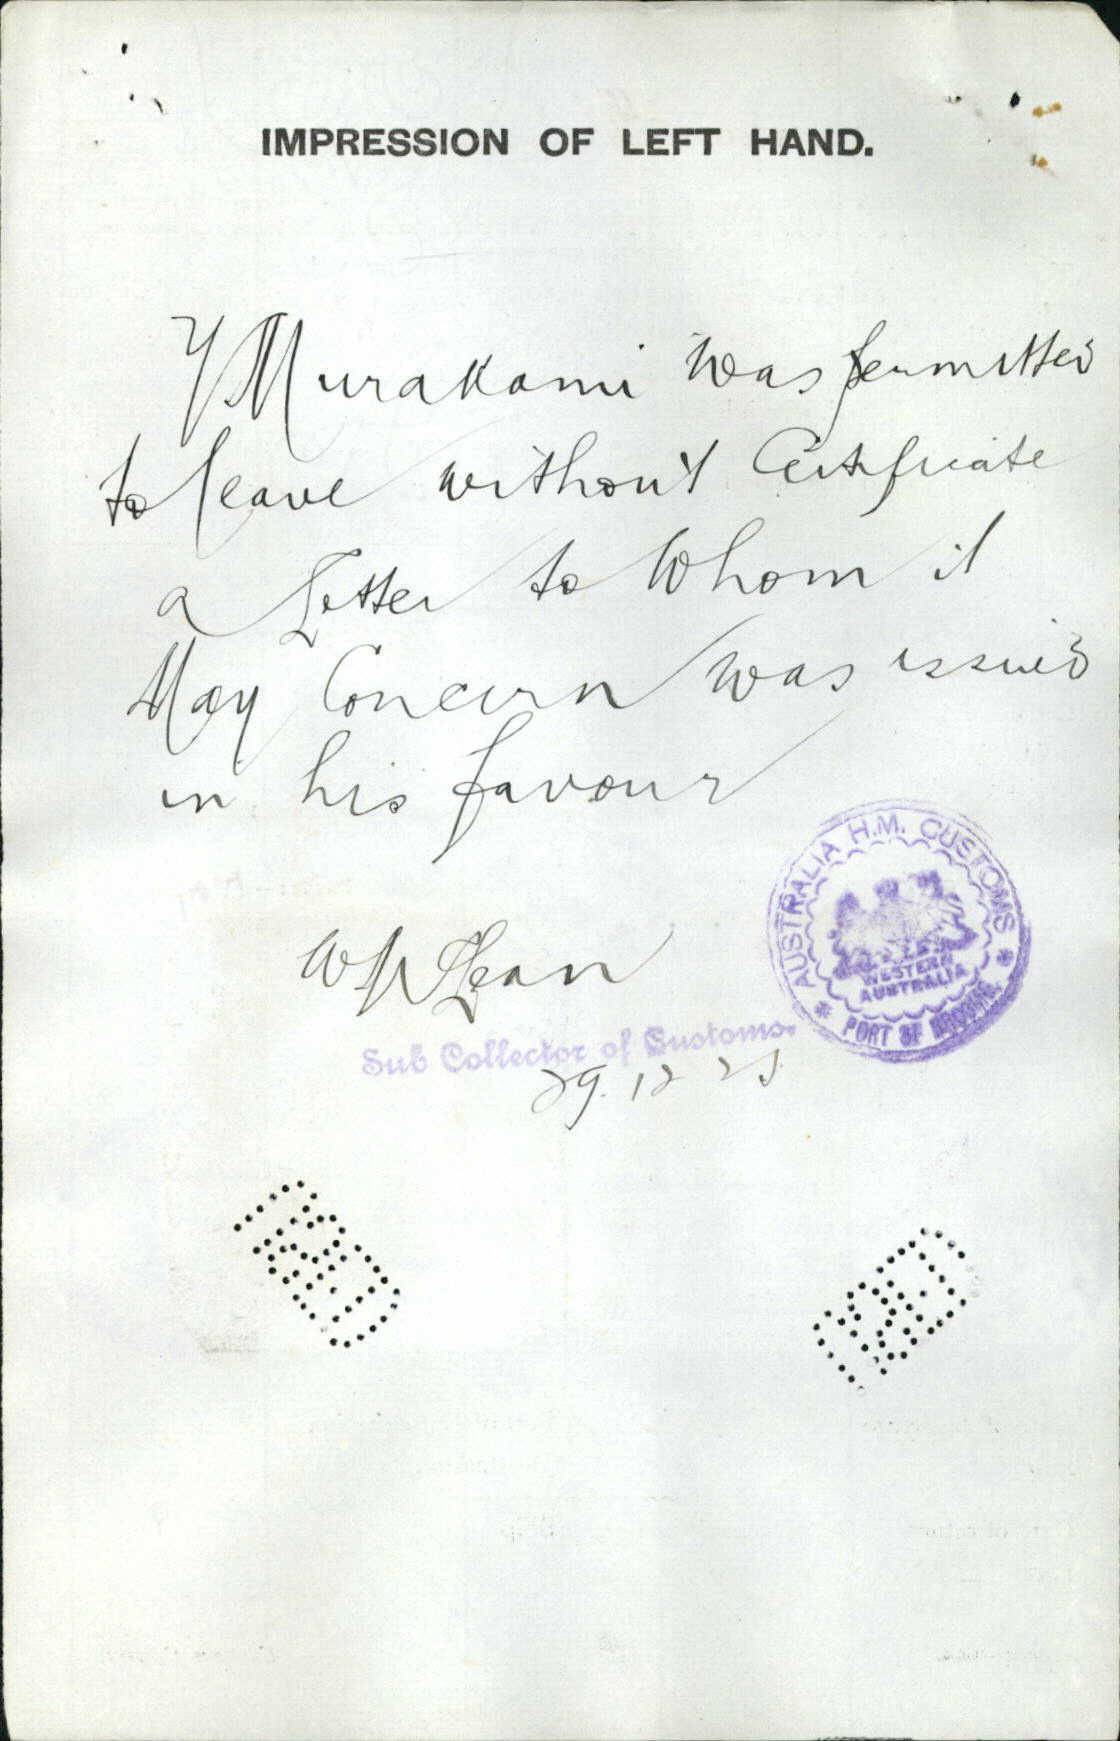 IMPRESSION OF LEFT HAND.
Y Murakami was permitted
to leave without Certificate
a Letter to Whom it
May Concern was issued
in his favour
AUSTRALIA H.M. CUSTOMS
WESTERN
AUSTRALIA
PORT OF BROOME
W McLean
Sub Collector of Customs.
29.12